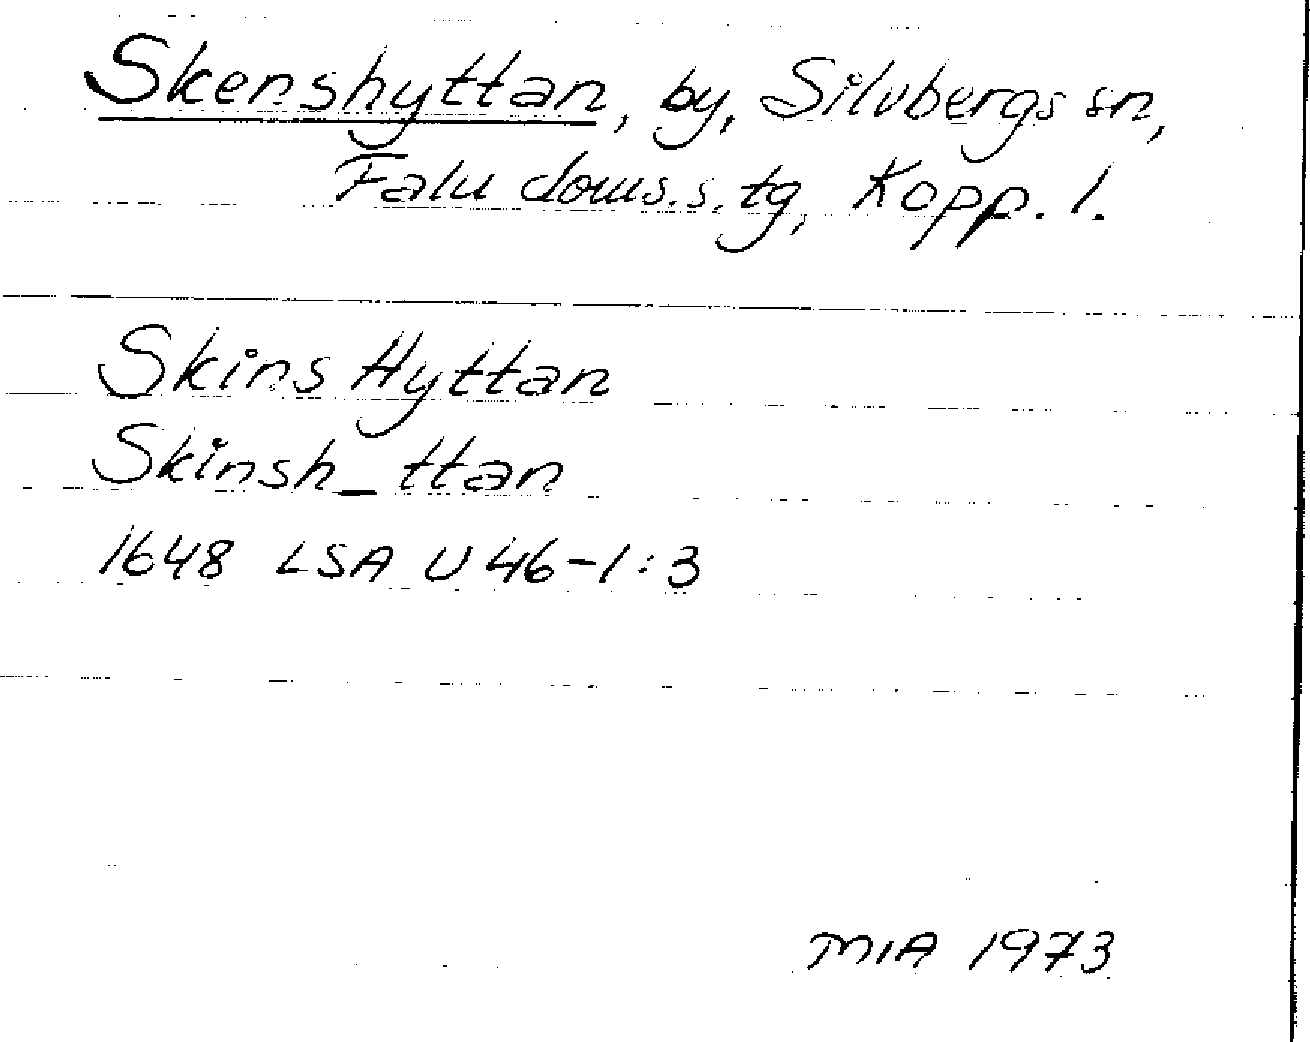 Skenshyttan, by, Silvbergs sn,
Falu doms.s. tg, Kopp. l.
Skins Hyttan
Skinsh_ttan
1648 LSA U 46-1:3
MIA 1973